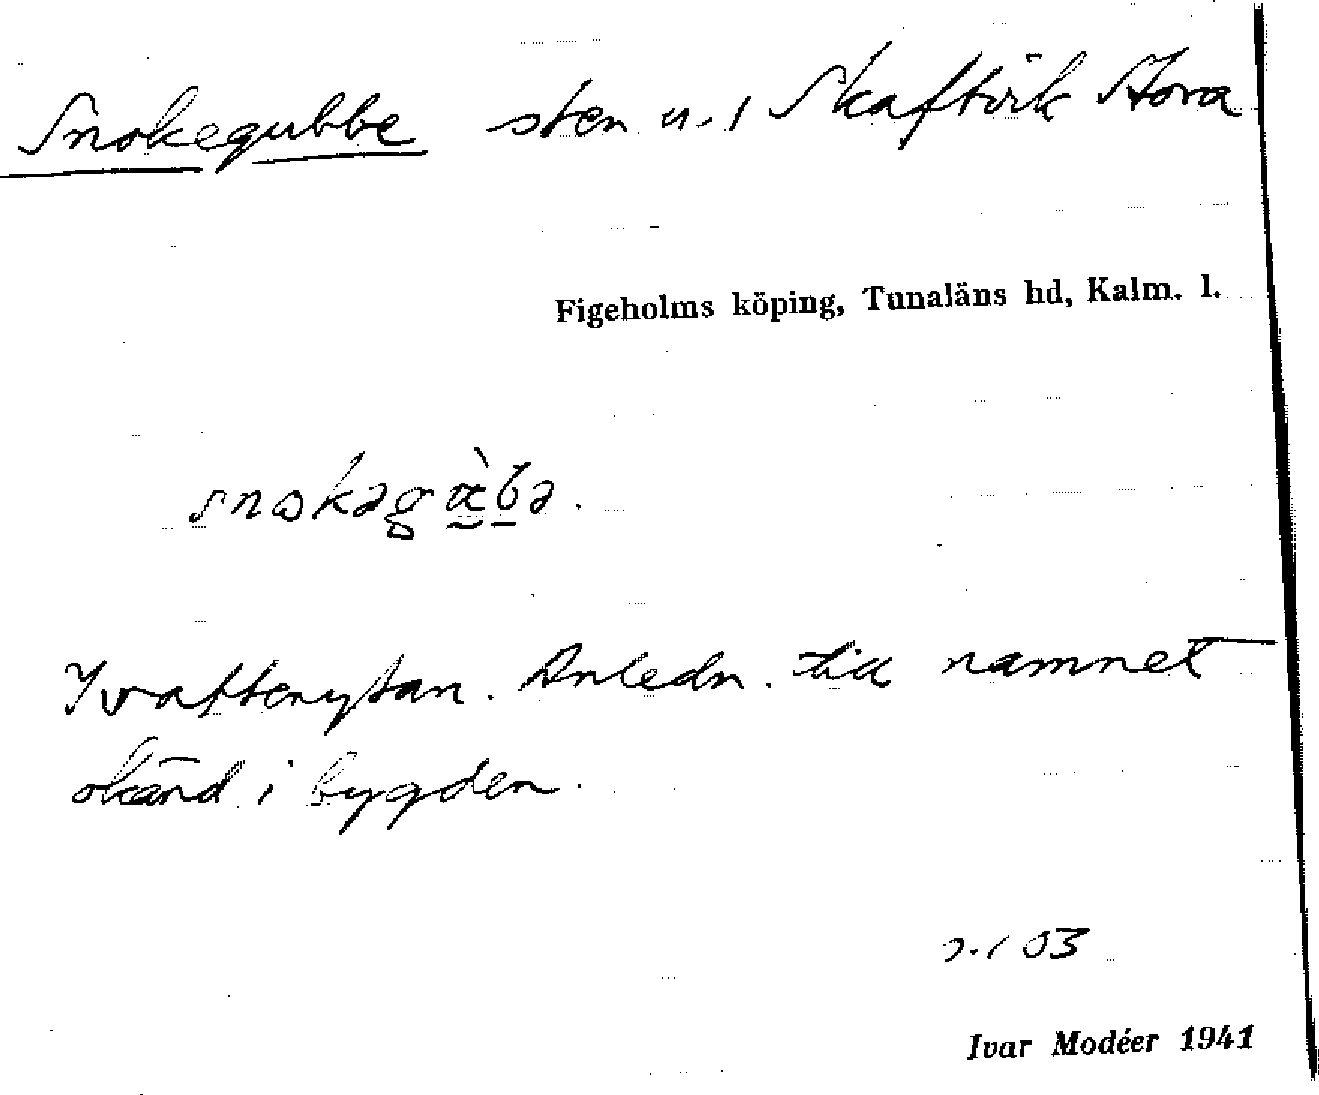 Snokegubbe sten u. 1 Skaftvik Stora
Figeholms köping, Tunaläns hd, Kalm. l.
I vattenytan. Anledn. till namnet
okänd i bygden.
Ivar Modéer 1941